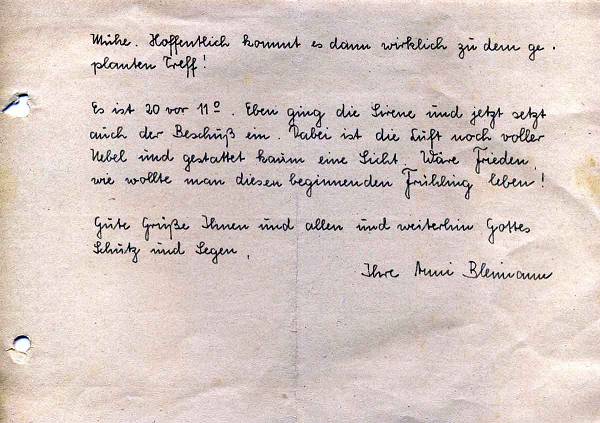 Mühe. Hoffentlich kommt es dann wirklich zu dem ge-
planten Treff!
Es ist 20 vor 11º. Eben ging die Sirene und jetzt setzt
auch der Beschuß ein. Dabei ist die Luft noch voller
Nebel und gestattet kaum eine Sicht. Wäre Frieden,
wie wollte man diesen beginnenden Frühling leben!
Gute Grüße Ihnen und allen und weiterhin Gottes
Schutz und Segen,
Ihre Anni